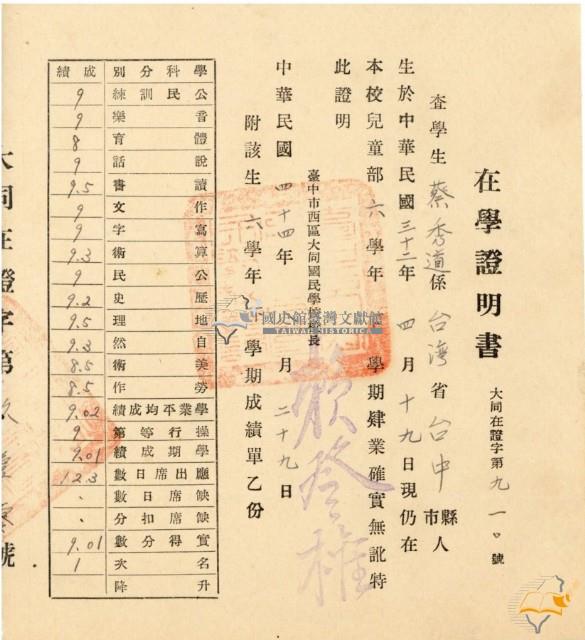 在學證明書
大同在證字第九一0號
查學生蔡秀道係台灣省台中縣市人
生於中華民國三十二年四月十九日現仍在
本校兒童部六學年上學期肄業確實無訛特
此證明
臺中市西區大同國民學校校長
賴登雄
中華民國四十四年月二十九日
附該生六學年上學期成績單乙份
學科分別 成績
公民訓練 9
音樂 9
體育 8
說話 9
讀書 9.5
作文 9
寫字 9
算術 9.3
公民 9
歷史 9.2
地理 9.5
自然 9.3
美術 8.5
勞作 8.5
學業平均成績 9.02
操行等第 9
學期成績 9.01
應出席日數 123
缺席日數 .
缺席扣分 .
實得分數 9.01
名次 1
升降
大同在證字第
號
國史館臺灣文獻館
TAIWAN HISTORICA